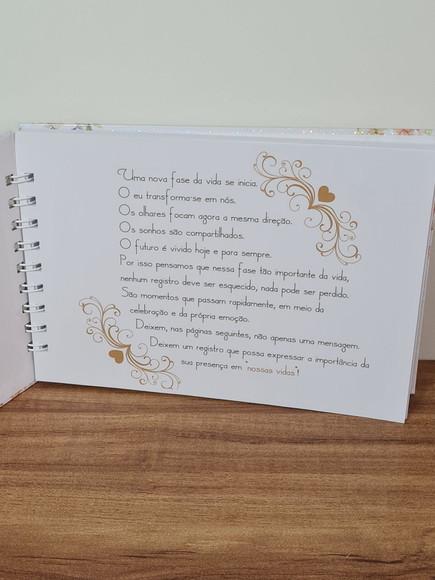 Uma nova fase da vida se inicia.
O eu transforma-se em nós.
Os olhares focam agora a mesma direção.
Os sonhos são compartilhados.
O futuro é vivido hoje e para sempre.
Por isso pensamos que nessa fase tão importante da vida,
nenhum registro deve ser esquecido, nada pode ser perdido.
São momentos que passam rapidamente, em meio da
celebração e da própria emoção.
Deixem, nas páginas seguintes, não apenas uma mensagem.
Deixem um registro que possa expressar a importância da
sua presença em "nossas vidas"!